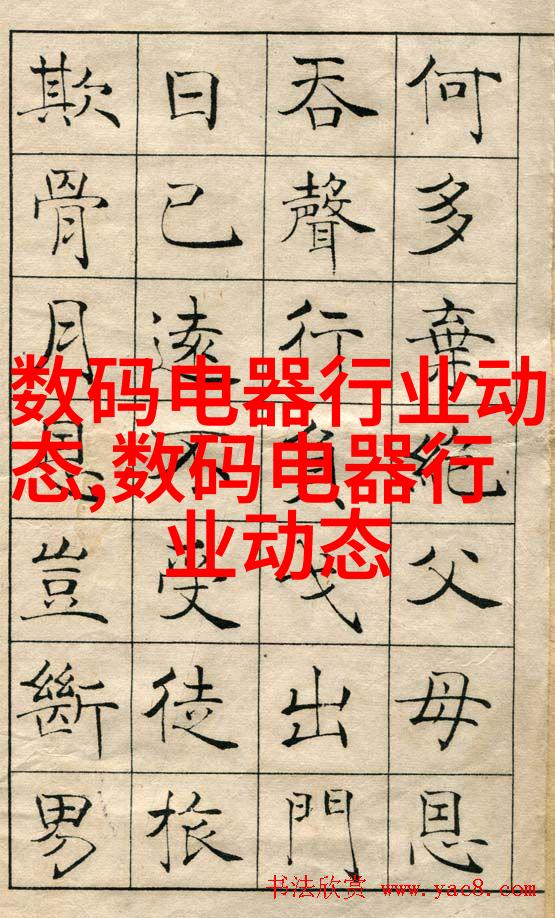 何多棄絕父母恩
吞聲行負戈出門
日已遠不受徒旅
欺骨月恩豈斷男
数码电器行业动
态,数码电器行
业动态
书法欣赏 www.yac8.com